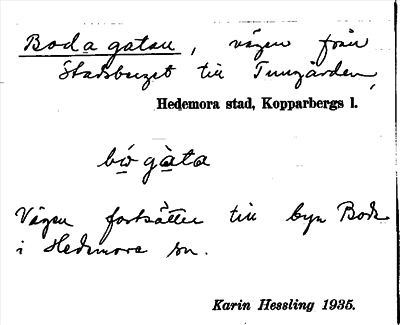 Bodagatan, vägen från
Stadshuset till Tungården,
Hedemora stad, Kopparbergs l.
bo gata
Vägen fortsätter till byn Boda
i Hedemora sn.
Karin Hessling 1935.